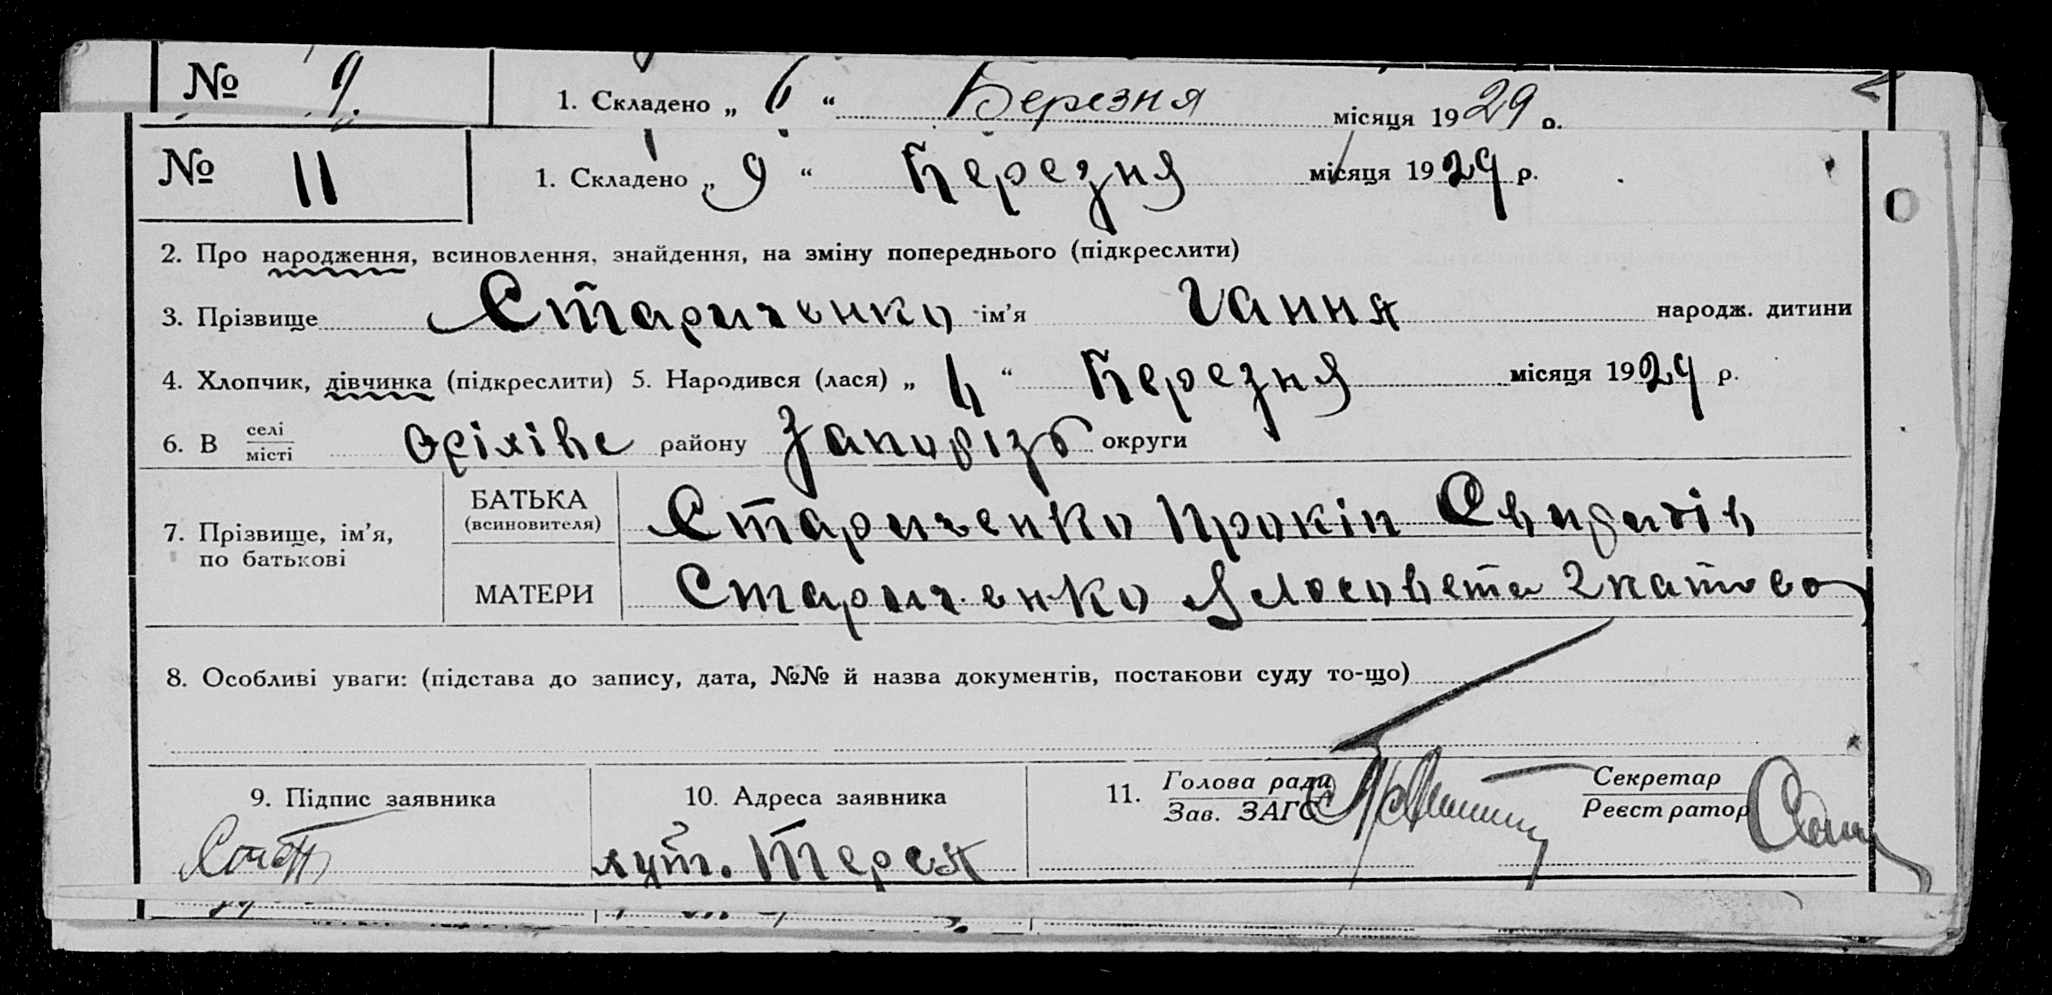 № 9.
1. Складено „ 6 “ Березня місяця 1929 р.
№ 11
1. Складено „ 9 “ Березня місяця 1929 р.
2. Про народження, всиновлення, знайдення, на зміну попереднього (підкреслити)
3. Прізвище Стариченко ім'я Ганна народж. дитини
4. Хлопчик, дівчинка (підкреслити) 5. Народився (лася) „ “ Березня місяця 1929 р.
6. В селі/місті Оріхіве району Запоріз округи
7. Прізвище, ім'я, по батькові
БАТЬКА (всиновителя) Стариченко Прокіп
МАТЕРИ Стариченко Ігнатово
8. Особливі уваги: (підстава до запису, дата, №№ й назва документів, постанови суду то-що)
9. Підпис заявника
10. Адреса заявника
хут. Терся
11. Голова ради
Зав. ЗАГС
Секретар
Реєстратор